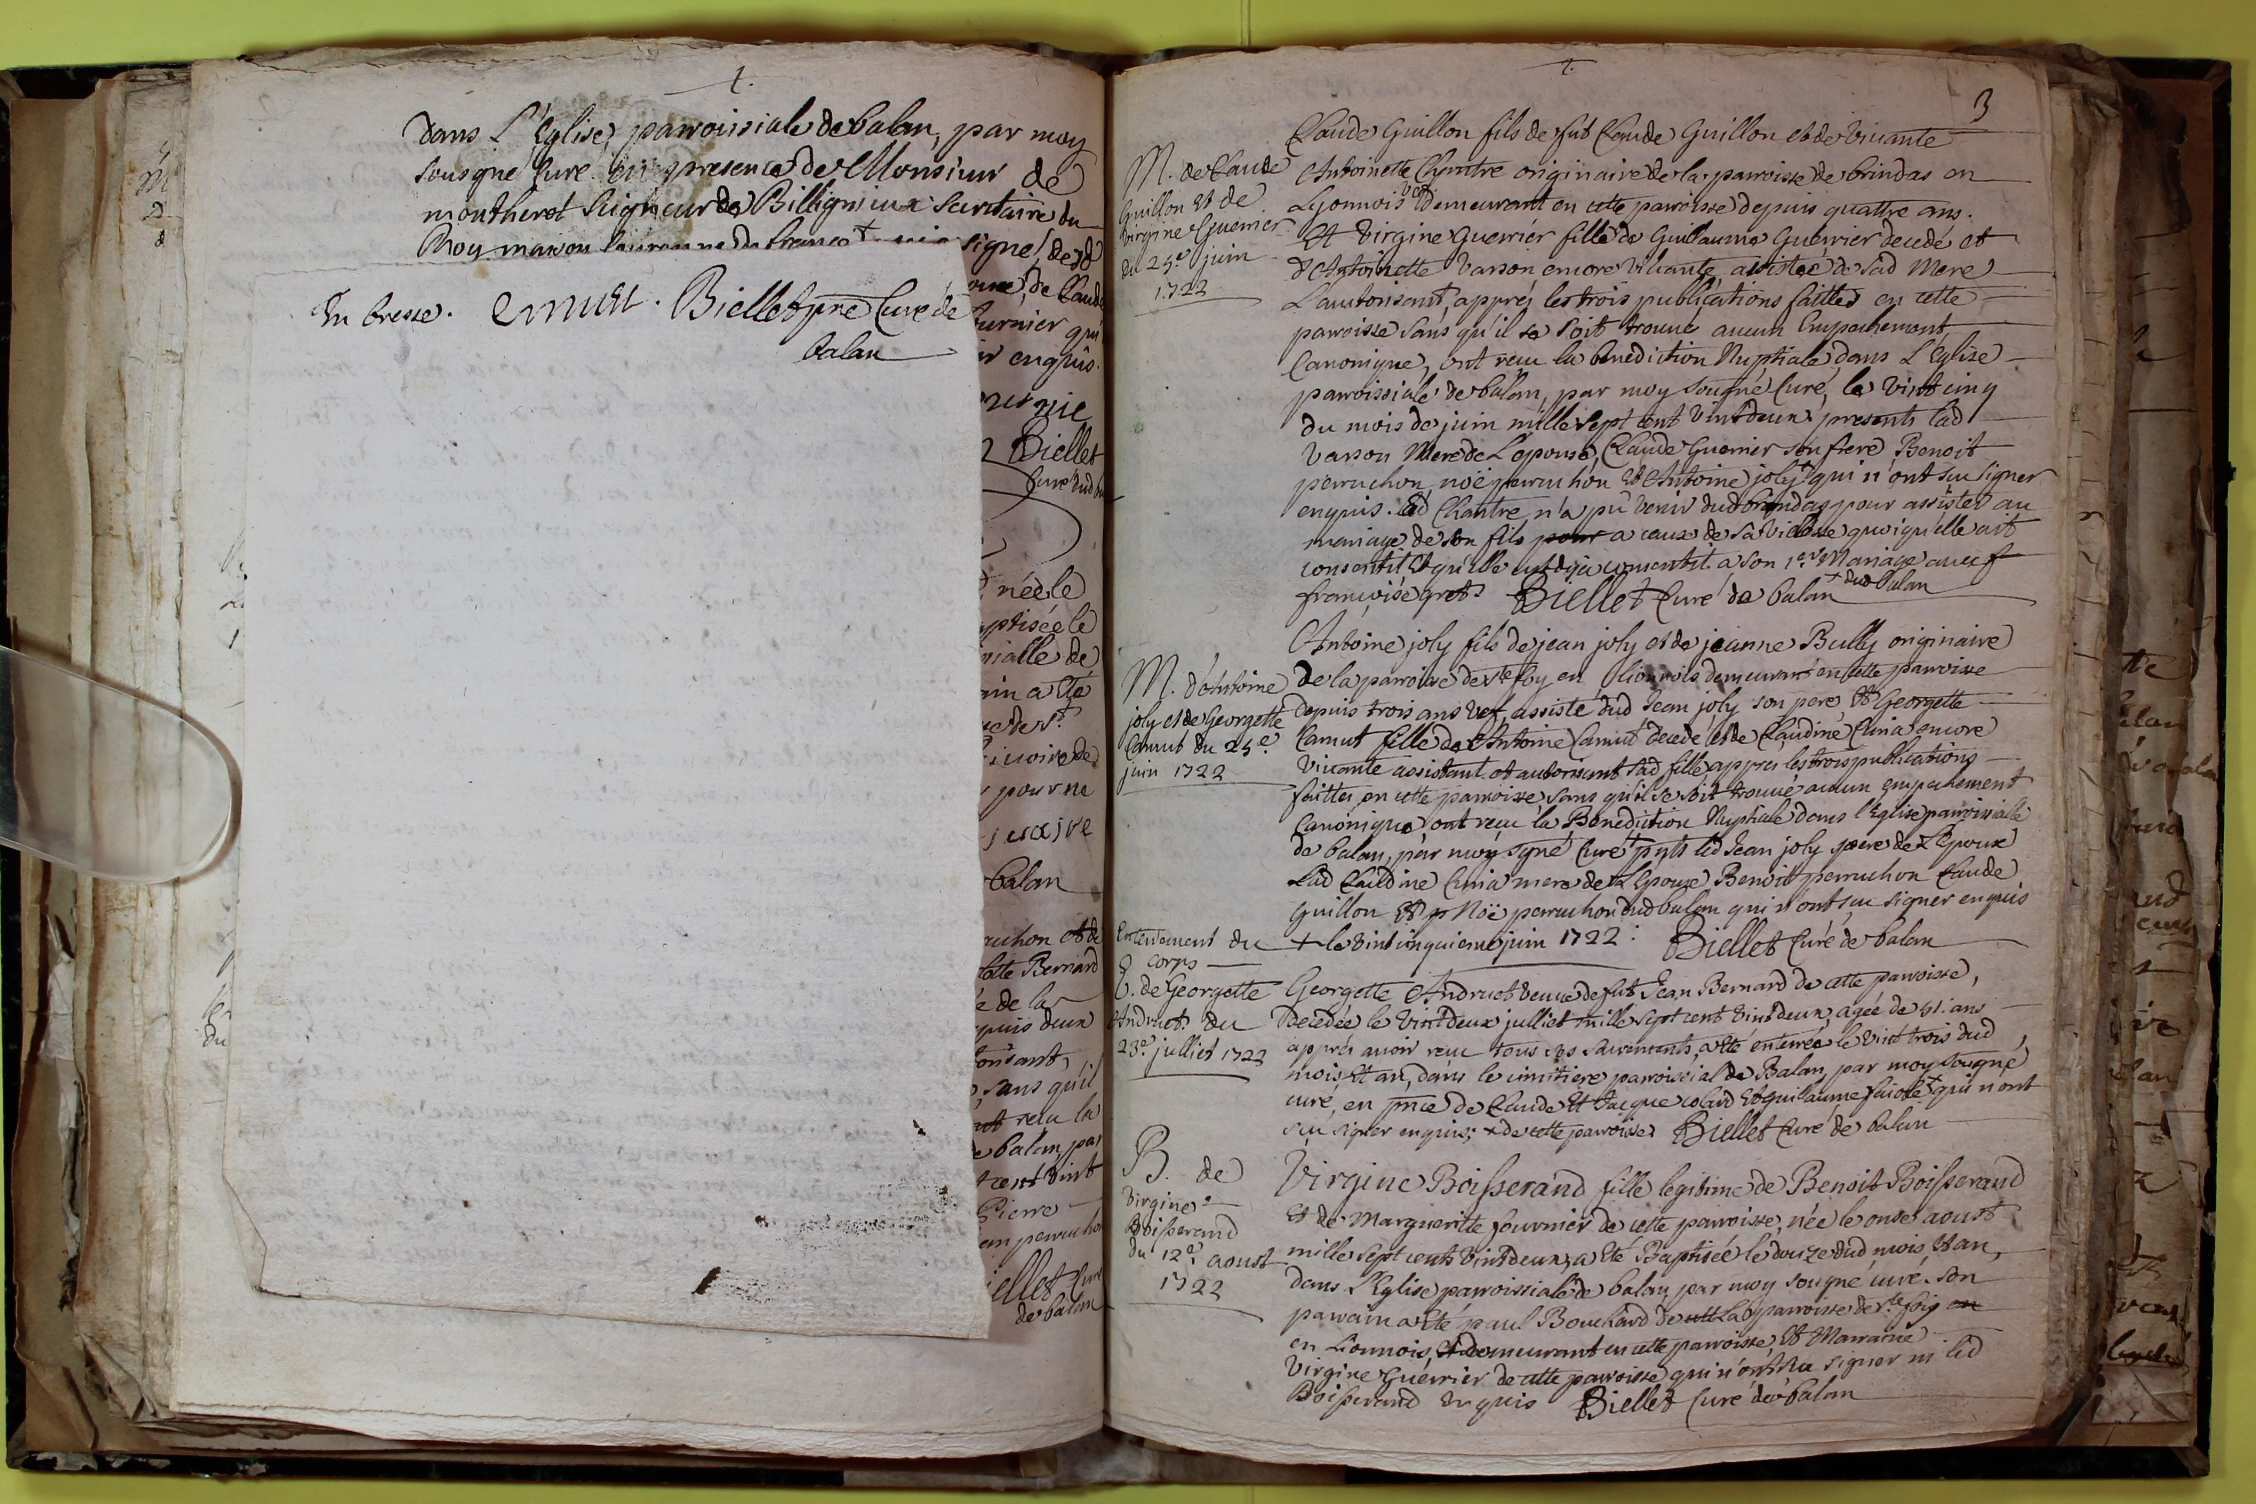 dans L'Eglise, parroissiale de balan, par moy
sousigné Curé en presence de Monsieur de
montherot Seigneur de Billignieux Secretaire du
Roy maison Couronne de france
En bresse. Biellet pre Curé de
balan
signé, de
de Claude
furnier qui
enquis.
Biellet
Curé dud
née le
mialle de
ain a été
pour ne
balan
ruchon et de
Bernard
é de la
puis deux
sans qu'il
recu la
balan, par
cent vint
Pierre
curé
de balan
3
M. de Claude
Guillon Et de
Virgine Guerrier
du 25e juin
1722
Claude Guillon fils de fut Claude Guillon et de vivante
Antoinette Chantre originaire de la parroisse de brindas en
Lyonnois demeurant en cette parroisse depuis quattre ans.
Et Virgine Guerrier fille de Guillaume Guerrier decedé et
d'Antoinette Varson encore vivante, assistée de sad Mere
L'autorisant, apprés les trois publications faittes en cette
parroisse sans qu'il se soit trouvé aucun Empechement
Canonique, ont reçu la benediction Nuptiale, dans L'Eglise
parroissiale de balan, par moy sousigné Curé, le vint cinq
du mois de juin mille sept cent vint deux presents lad
Varson Mere de L'epouse, Claude Guerrier son frere, Benoit
perruchon, noë perruchon Et Antoine joly + qui n'ont sçu signer
enquis. lad Chantre n'a pû venir dud brindas pour assister au
mariage de son fils pour a ceuse de sa vieillesse quoiqu'elle ait
consentit et qu'elle eut deja consentit a son 1er Mariage avec f
françoise gret. Biellet Curé de balan + dud balan
M. d'Antoine
joly et de Georgette
Camut du 25e
juin 1722
Antoine joly fils de jean joly et de jeanne Bully originaire
de la parroisse de ste foy en lionnois demeurant en cette parroisse
depuis trois ans vef, assisté dud Jean joly son pere Et Georgette
Camut fille de Antoine Camut decedé et de Claudine Cunia encore
vivante assistant et autorisant sad fille, appres les trois publications
faittes en cette parroisse, sans qu'il se soit trouvé aucun empechement
Canonique, ont reçu la Benediction Nuptiale dans l'Eglise parroissialle
de balan, par moy signé Curé + pnts led Jean joly pere de L'Epoux
Lad Claudine Cunia mere de L'Epouse Benoit perruchon Claude
Guillon Et Noë perruchon dud balan qui n'ont sçu signer enquis
+ le vint cinquieme juin 1722: Biellet Curé de balan
Enterrement du
corps
de Georgette
Andruet. du
23e julliet 1722
Georgette Andruet veuve de fut Jean Bernard de cette parroisse,
decedée le vint deux julliet mille sept cent vint deux, agée de 41. ans
apprés avoir reçu tous ses sacrements, a été enterrée le vint trois dud
mois, Et an, dans le cimitiere parroissial de Balan, par moy sousigné
curé, en pnce de Claude Et Jacque colard Et guillaume + qui n'ont
sçu signer enquis; + de cette parroisse Biellet Curé de balan
B. de
Virgine
Boisserand
du 12e. aoust
1722
Virgine Boisserand fille legitime de Benoit Boisserand
Et de Margueritte fournier de cette parroisse, née le onze aoust
mille sept cents vint deux, a été Baptisée le douze dud mois, Et an,
dans l'Eglise parroissiale de balan par moy sousigné curé. son
parrain a été paul Bouchard de cett la parroisse de ste foy en
en Lionnois, Et demeurant en cette parroisse, Et Marraine
Virgine Guerrier de cette parroisse qui n'ont sçu signer ni led
Boisserand enquis Biellet Curé de balan